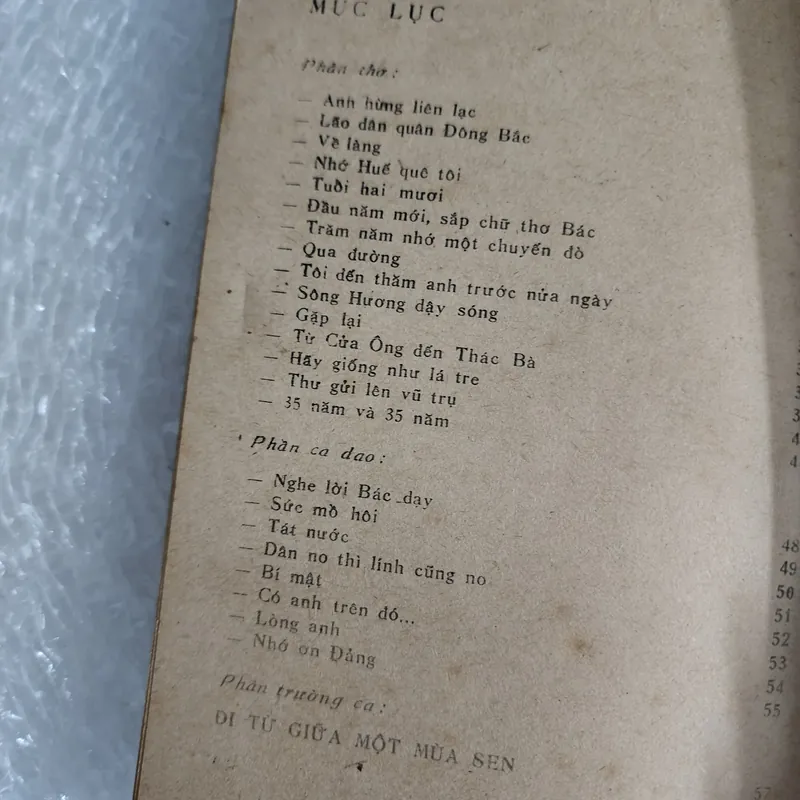 MỤC LỤC
Phần thơ:
— Anh hùng liên lạc
— Lão dân quân Đông Bắc
— Về làng
— Nhớ Huế quê tôi
— Tuổi hai mươi
— Đầu năm mới, sắp chữ thơ Bác
— Trăm năm nhớ một chuyến đò
— Qua đường
— Tôi đến thăm anh trước nửa ngày
— Sông Hương dậy sóng
— Gặp lại
— Từ Cửa Ông đến Thác Bà
— Hãy giống như lá tre
— Thư gửi lên vũ trụ
— 35 năm và 35 năm
Phần ca dao:
— Nghe lời Bác dạy 48
— Sức mồ hôi 49
— Tát nước 50
— Dân no thì lính cũng no 51
— Bí mật 52
— Có anh trên đó... 53
— Lòng anh 54
— Nhớ ơn Đảng 55
Phần trường ca:
ĐI TỪ GIỮA MỘT MÙA SEN 57